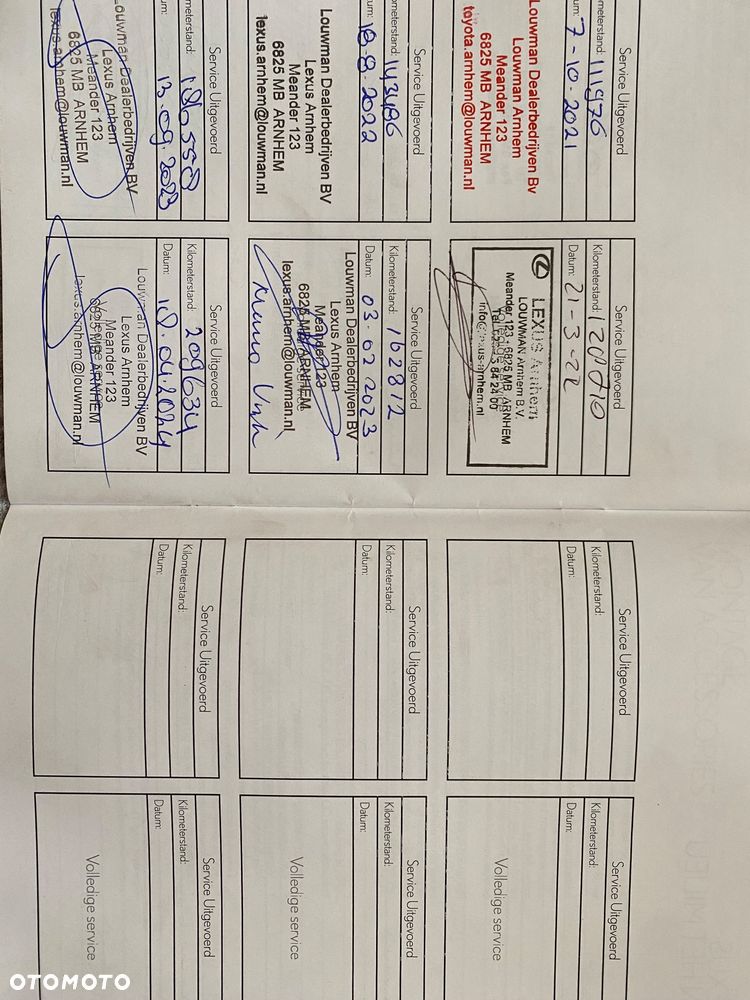 Service Uitgevoerd
Kilometerstand: 111976
Datum: 7-10-2021
Louwman Dealerbedrijven Bv
Louwman Arnhem
Meander 123
6825 MB ARNHEM
toyota.arnhem@louwman.nl
Service Uitgevoerd
Kilometerstand:
Datum: 21-3-22
LEXUS Arnhem
LOUWMAN Arnhem B.V.
Meander 123 - 6825 MB ARNHEM
info@lexus-arnhem.nl
Service Uitgevoerd
Kilometerstand: 143486
Datum: 18.8.2022
Louwman Dealerbedrijven BV
Lexus Arnhem
Meander 123
6825 MB ARNHEM
lexus.arnhem@louwman.nl
Service Uitgevoerd
Kilometerstand: 162812
Datum: 03.02.2023
Louwman Dealerbedrijven BV
Lexus Arnhem
Meander 123
6825 MB ARNHEM
lexus.arnhem@louwman.nl
Service Uitgevoerd
Kilometerstand: 186558
Datum: 13.09.2023
Louwman Dealerbedrijven BV
Lexus Arnhem
Meander 123
6825 MB ARNHEM
lexus.arnhem@louwman.nl
Service Uitgevoerd
Kilometerstand: 209634
Datum: 18.04.2024
Louwman Dealerbedrijven BV
Lexus Arnhem
Meander 123
6825 MB ARNHEM
lexus.arnhem@louwman.nl
Service Uitgevoerd
Kilometerstand:
Datum:
Service Uitgevoerd
Kilometerstand:
Datum:
Volledige service
Service Uitgevoerd
Kilometerstand:
Datum:
Service Uitgevoerd
Kilometerstand:
Datum:
Volledige service
Service Uitgevoerd
Kilometerstand:
Datum:
Service Uitgevoerd
Kilometerstand:
Datum:
Volledige service
OTOMOTO